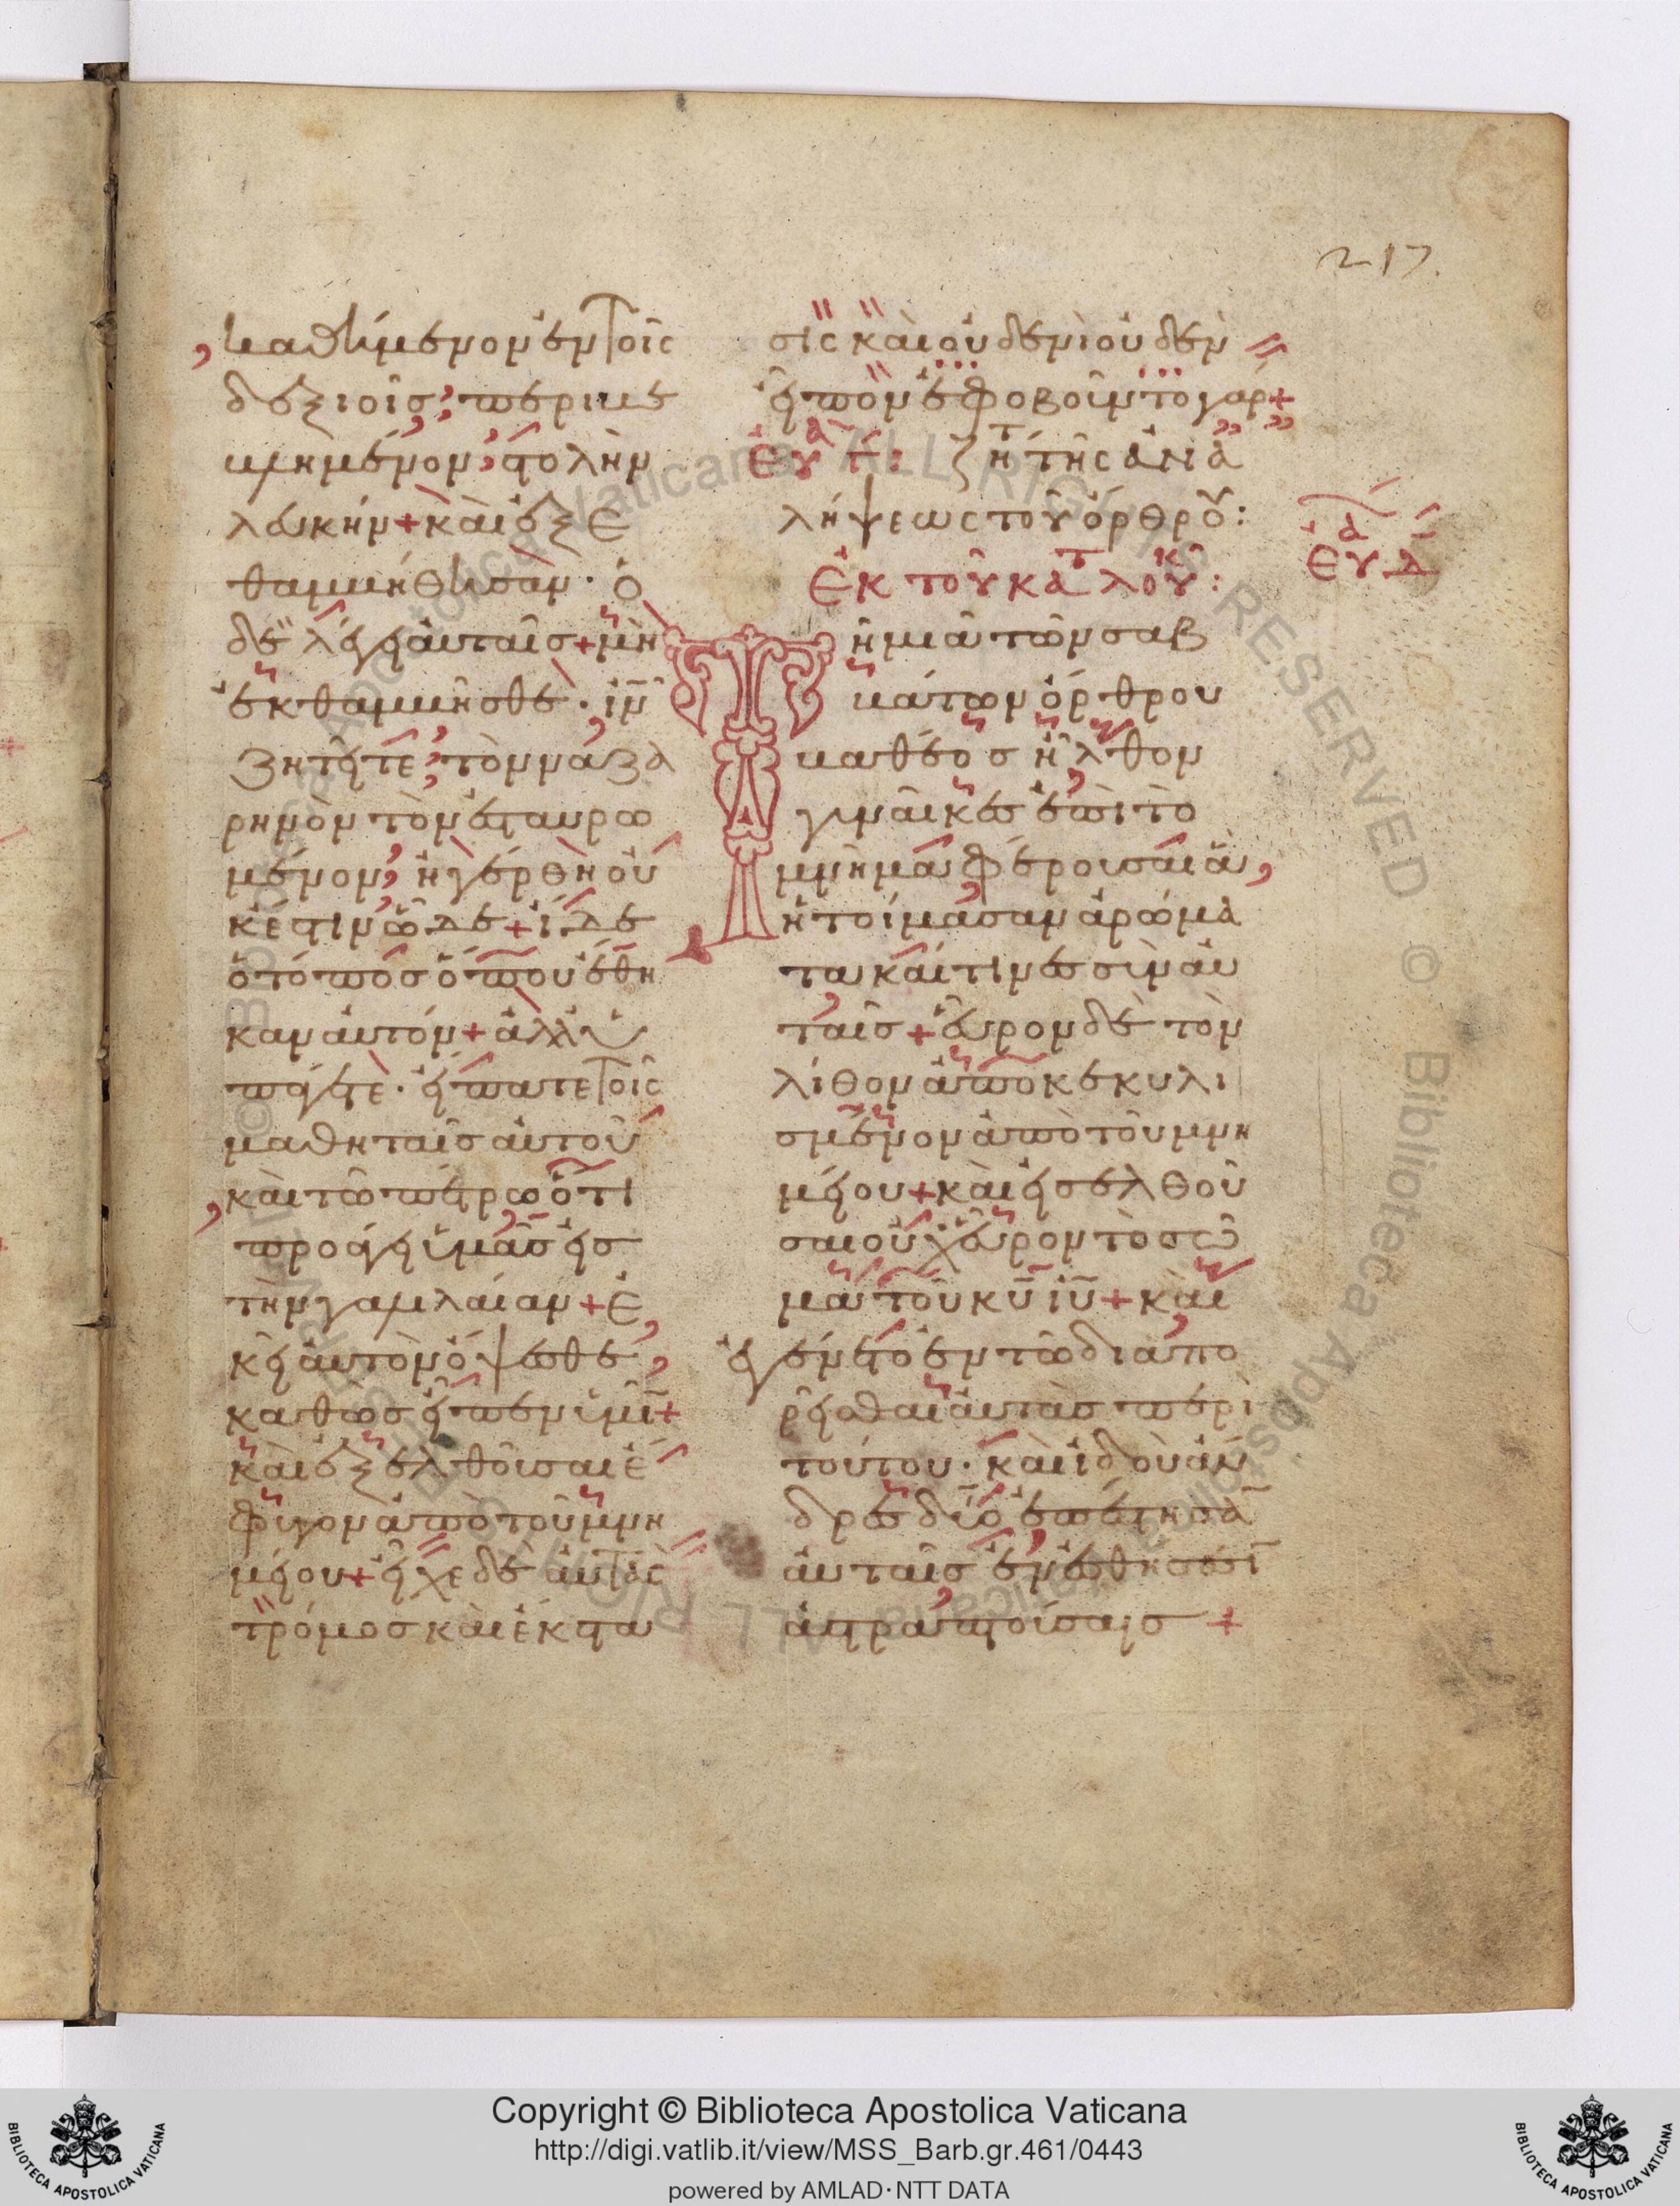 217.
καθήμενον ἐν τοῖς
δεξιοῖς· περιβε
βλημένον στολὴν
λευκήν + καὶ ἐξε
θαμβήθησαν · ὁ
δὲ λέγει αὐταῖς + μὴ
ἐκθαμβεῖσθε · ἰ̅ν̅
ζητεῖτε· τὸν ναζα
ρηνὸν τὸν ἐσταυρω
μένον, ἠγέρθη οὐ
κέστιν ὧδε + ἴδε
ὁ τόπος ὅπου ἔθη
καν αὐτόν + ἀλλ' ὑ
πάγετε · εἴπατε τοῖς
μαθηταῖς αὐτοῦ
καὶ τῶ πέτρω ὅτι
προάγει ὑμᾶς εἰς
τὴν γαλιλαίαν + ἐ
κεῖ αὐτὸν ὄψεσθε,
καθὼς εἶπεν ὑμῖν +
καὶ ἐξελθοῦσαι ἔ
φυγον ἀπὸ τοῦ μνη
μείου + εἶχε δὲ αὐτὰς
τρόμος καὶ ἔκστα
σις καὶ οὐδενὶ οὐδὲν
εἶπον ἐφοβοῦντο γάρ +
ζητ τῆς ἀνα
λήψεως τοῦ ὄρθρου :
Ἐκ τοῦ κατ λουκ :
Τῆ μιᾶ τῶν σαβ
βάτων ὄρθρου
βαθέος ἦλθον
γυναῖκες ἐπὶ τὸ
μνῆμα φέρουσαι ἃ
ἡτοίμασαν ἀρώμα
τα καί τινες σὺν αὐ
ταῖς + εὗρον δὲ τὸν
λίθον ἀποκεκυλι
σμένον ἀπὸ τοῦ μνη
μείου + καὶ εἰσελθοῦ
σαι οὐχ εὗρον τὸ σῶ
μα τοῦ κ̅υ̅ ι̅υ̅ + καὶ
ἐγένετο ἐν τῶ διαπο
ρεῖσθαι αὐτὰς περὶ
τούτου · καὶ ἰδοὺ ἄν
δρες δύο ἐπέστησαν
αὐταῖς ἐν ἐσθήσεσιν
ἀστραπτούσαις +
Copyright © Biblioteca Apostolica Vaticana
http://digi.vatlib.it/view/MSS_Barb.gr.461/0443
powered by AMLAD·NTT DATA
BIBLIOTECA APOSTOLICA VATICANA
BIBLIOTECA APOSTOLICA VATICANA